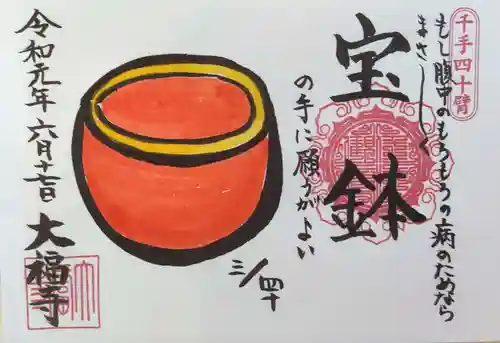 千手四十臂
もし腹中のもろもろの病のためなら
まさしく
宝鉢
の手に願うがよい
三/四十
令和元年六月十七日
大福寺